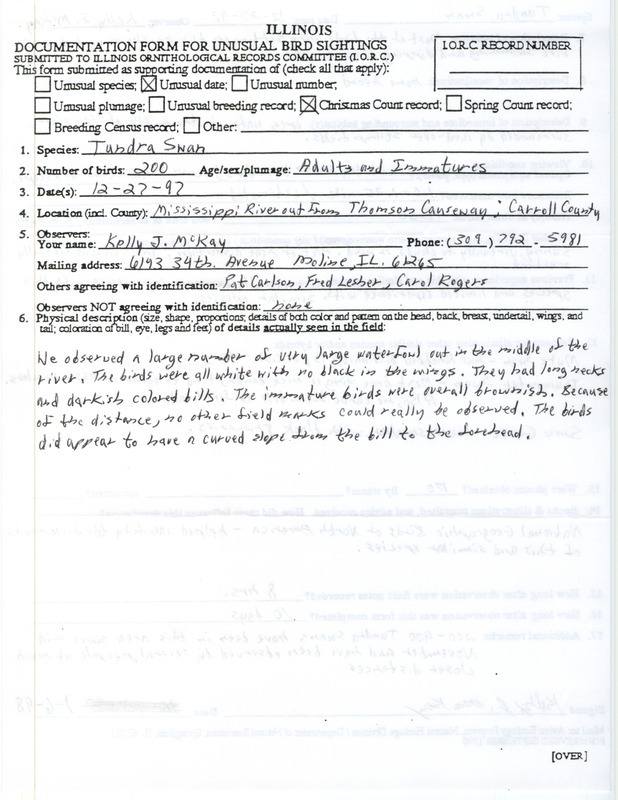 ILLINOIS
DOCUMENTATION FORM FOR UNUSUAL BIRD SIGHTINGS
SUBMITTED TO ILLINOIS ORNITHOLOGICAL RECORDS COMMITTEE (I.O.R.C.)
I.O.R.C. RECORD NUMBER
This form submitted as supporting documentation of (check all that apply):
Unusual species; Unusual date; Unusual number;
Unusual plumage; Unusual breeding record; Christmas Count record; Spring Count record;
Breeding Census record; Other:
1. Species: Tundra Swan
2. Number of birds: 200 Age/sex/plumage: Adults and Immatures
3. Date(s): 12-27-97
4. Location (incl. County): Mississippi River out from Thomson Causeway; Carroll County
5. Observers:
Your name: Kelly J. McKay Phone: (309) 792-5981
Mailing address: 6193 34th. Avenue Moline, IL. 61265
Others agreeing with identification: Pat Carlson, Fred Lesher, Carol Rogers
Observers NOT agreeing with identification: none
6. Physical description (size, shape, proportions; details of both color and pattern on the head, back, breast, undertail, wings, and
tail; coloration of bill, eye, legs and feet) of details actually seen in the field:
We observed a large number of very large waterfowl out in the middle of the
river. The birds were all white with no black in the wings. They had long necks
and darkish colored bills. The immature birds were overall brownish. Because
of the distance, no other field marks could really be observed. The birds
did appear to have a curved slope from the bill to the forehead.
[OVER]